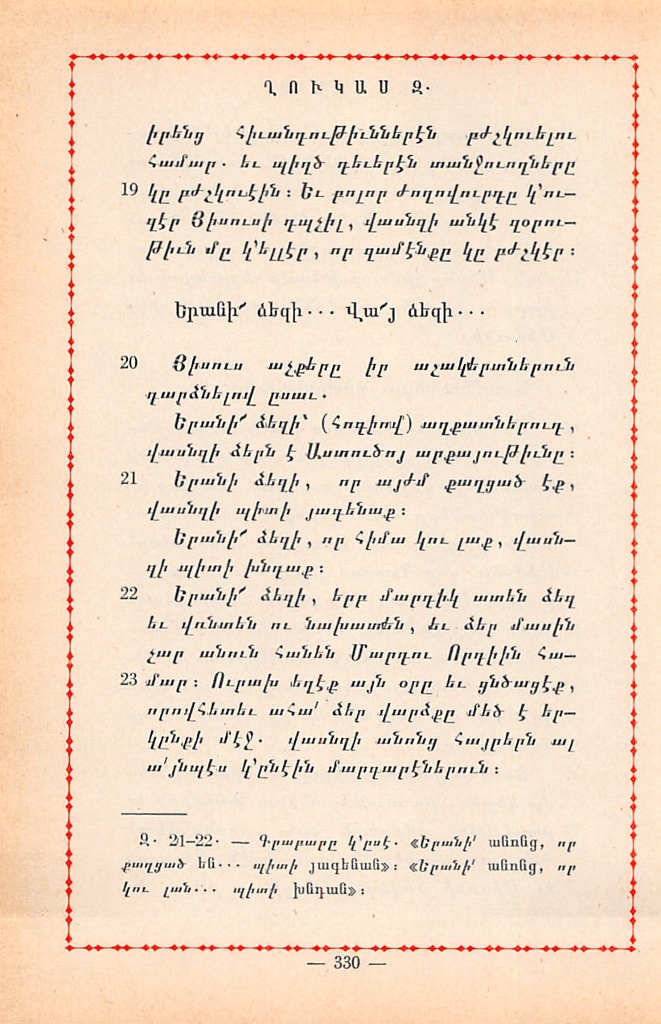 ՂՈՒԿԱՍ Զ.
իրենց հիւանդութիւններէն բժշկուելու
համար. եւ պիղծ դեւերէն տանջուողները
19 կը բժշկուէին։ Եւ բոլոր ժողովուրդը կ՚ու-
զէր Յիսուսի դպչիլ, վասնզի անկէ զօրու-
թիւն մը կ՚ելլէր, որ զամէնքը կը բժշկէր։
Երանի՜ ձեզի... Վա՜յ ձեզի...
20 Յիսուս աչքերը իր աշակերտներուն
դարձնելով ըսաւ.
Երանի՜ ձեզի՝ (հոգիով) աղքատներուդ,
վասնզի ձերն է Աստուծոյ արքայութիւնը։
21 Երանի ձեզի, որ այժմ քաղցած էք,
վասնզի պիտի յագենաք։
Երանի՜ ձեզի, որ հիմա կու լաք, վասն-
զի պիտի խնդաք։
22 Երանի՜ ձեզի, երբ մարդիկ ատեն ձեզ
եւ վռնտեն ու նախատեն, եւ ձեր մասին
չար անուն հանեն Մարդու Որդիին հա-
23 մար։ Ուրախ եղէք այն օրը եւ ցնծացէք,
որովհետեւ ահա՛ ձեր վարձքը մեծ է եր-
կընքի մէջ. վասնզի անոնց հայրերն ալ
ա՛յնպէս կ՚ընէին մարդարէներուն։
Զ. 21-22. — Գրաբարը կ՚ըսէ. «Երանի՛ անոնց, որ
քաղցած են... պիտի յագենան»։ «Երանի՛ անոնց, որ
կու լան... պիտի խնդան»։
— 330 —